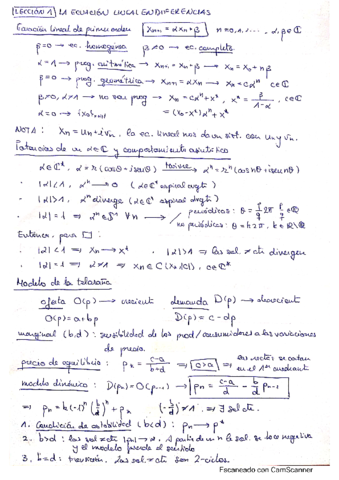 LECCIÓN 1 LA ECUACIÓN LINEAL EN DIFERENCIAS
Ecuación lineal de primer orden x_{n+1} = αx_n + β n=0,1,..., α,β∈ℂ
β=0 → ec. homogénea β≠0 → ec. completa
α=1 → prog. aritmética → x_{n+1} = x_n + β → x_n = x_0 + nβ
β=0 → prog. geométrica → x_{n+1} = αx_n → x_n = cα^n c∈ℂ
β≠0, α≠1 → no son prog → x_n = cα^n + x*, x* = β/(1-α), c∈ℂ
α=0 → = (x_0 - x*)α^n + x*
NOTA: x_n = u_n + i v_n, la ec. lineal nos da un sist. con u_n y v_n.
Potencias de un α∈ℂ y comportamiento asintótico
α∈ℂ*, α = r(cosθ + i senθ) Moivre → α^n = r^n(cos nθ + i sen nθ)
· |α|<1, α^n → 0 (α∈ℂ* espiral)
· |α|>1, α^n diverge (α∈ℂ* espiral)
· |α|=1 → α^n∈S^1 ∀n → periódicas: θ = p/q 2π p/q∈ℚ
no periódicas: θ = k2π, k∈ℝ\ℚ
Entonces, para □:
· |α|<1 ⇒ x_n → x* · |α|>1 ⇒ las sol. ≠ cte divergen
· |α|=1 → α≠1 ⇒ x_n∈C(x*, |c|), c∈ℂ*
Modelo de la telaraña
oferta O(p) → creciente demanda D(p) → decreciente
O(p) = a + bp D(p) = c - dp
marginal (b,d): sensibilidad de los prod/consumidores a las variaciones
de precio.
precio de equilibrio: p* = (c-a)/(b+d) ⇒ c>a ⇒ las rectas se cortan
en el 1er cuadrante
modelo dinámico: D(p_n) = O(p_{n-1}) → p_n = (c-a)/d - b/d p_{n-1}
⇒ p_n = k(-1)^n (b/d)^n + p* (-b/d) ≠ 1 ⇒ ∃ sol cte.
1. Condición de estabilidad (b<d): p_n → p*
2. b>d: las sol ≠ cte |p_n| → ∞. A partir de un n la sol. se hace negativa
y el modelo pierde el sentido
3. b=d: transición. Las sol ≠ cte son 2-ciclos.
Escaneado con CamScanner